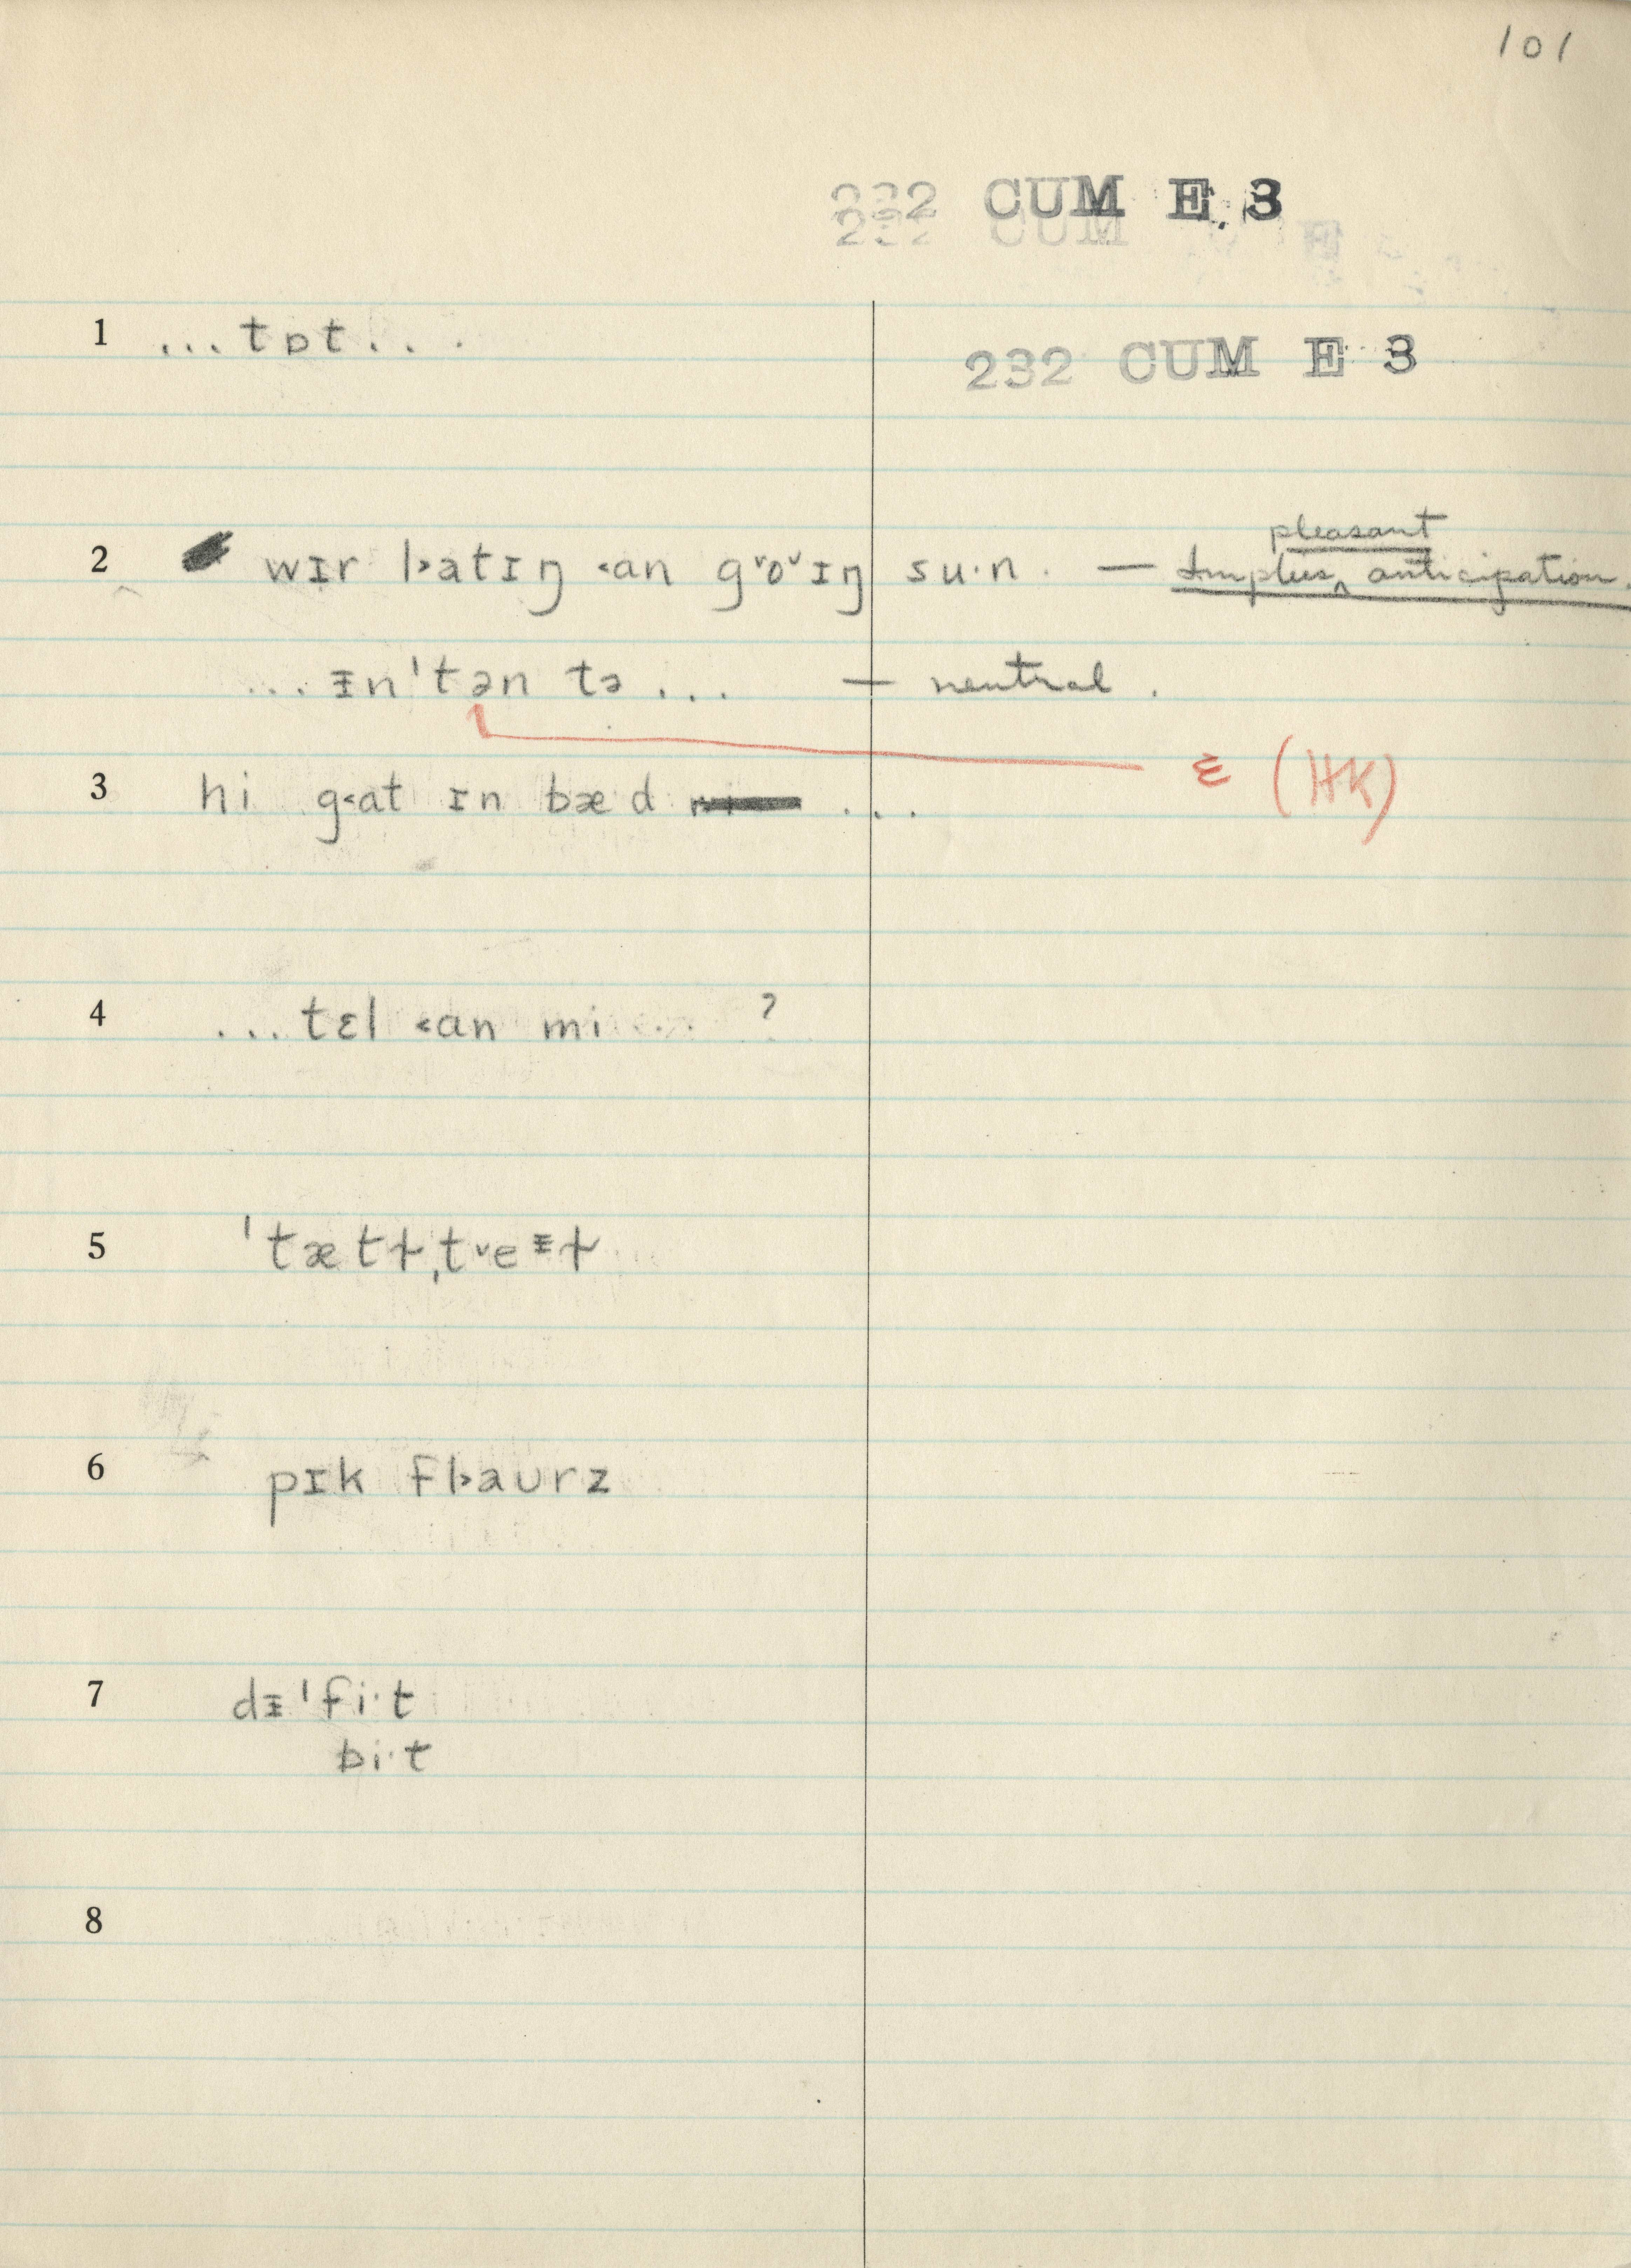 101
232 CUM E 3
232 CUM E 3
1 ...tɒt...
2 wɪr l˃atɪŋ ˂an ɡ˅o˅ɪŋ su·n. — Implies pleasant anticipation.
...ᵻn'tən tə... — neutral.
ɛ (HK)
3 hi ɡ˂at ɪn bæd ...
4 ...tɛl ˂an mi ?
5 ˈtætɫˌt˅eᵻɫ
6 pɪk fl˃aʊrz
7 dᵻˈfi·t
bi·t
8